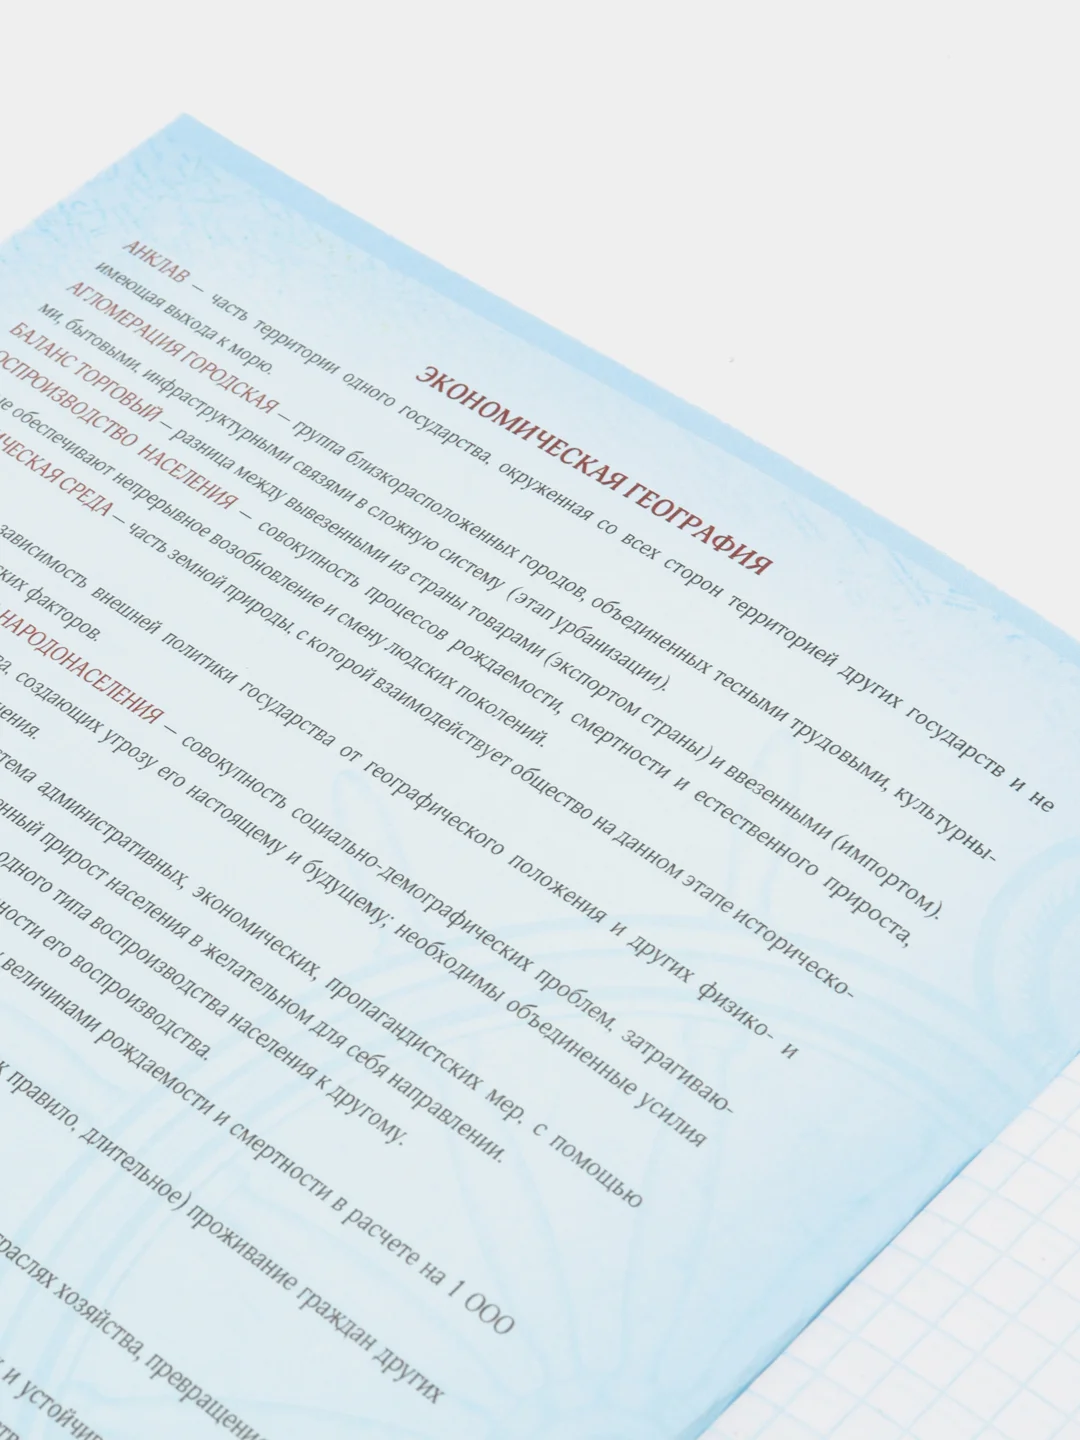 ЭКОНОМИЧЕСКАЯ ГЕОГРАФИЯ
АНКЛАВ – часть территории одного государства, окруженная со всех сторон территорией других государств и не
имеющая выхода к морю.
АГЛОМЕРАЦИЯ ГОРОДСКАЯ – группа близкорасположенных городов, объединенных тесными трудовыми, культурны-
ми, бытовыми, инфраструктурными связями в сложную систему (этап урбанизации).
БАЛАНС ТОРГОВЫЙ – разница между вывезенными из страны товарами (экспортом страны) и ввезенными (импортом).
НАСЕЛЕНИЯ – совокупность процессов рождаемости, смертности и естественного прироста,
обеспечивают непрерывное возобновление и смену людских поколений.
СРЕДА – часть земной природы, с которой взаимодействует общество на данном этапе историческо-
зависимость внешней политики государства от географического положения и других физико- и
факторов.
НАРОДОНАСЕЛЕНИЯ – совокупность социально-демографических проблем, затрагиваю-
создающих угрозу его настоящему и будущему; необходимы объединенные усилия
административных, экономических, пропагандистских мер, с помощью
прирост населения в желательном для себя направлении.
одного типа воспроизводства населения к другому.
его воспроизводства.
величинами рождаемости и смертности в расчете на 1 000
правило, длительное) проживание граждан других
хозяйства, превращение
и